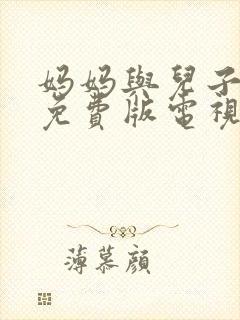 妈妈與兒子
免費版電視
薄慕顏